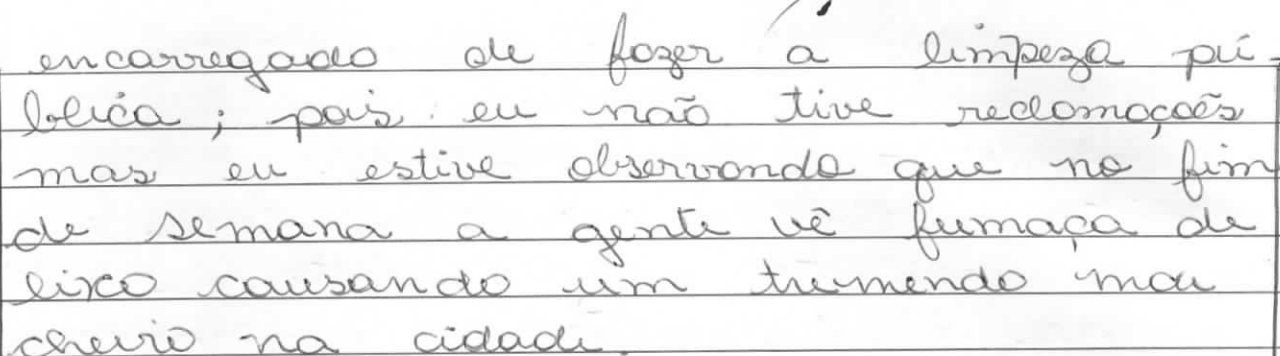 encarregado de fazer a limpeza pú-
blica; pois eu não tive reclamações
mas eu estive observando que no fim
de semana a gente vê fumaça de
lixo causando um tremendo mau
cheiro na cidade.